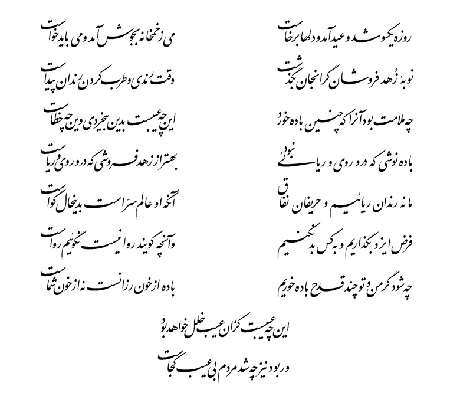 روزه یکسو شد و عید آمد و دلها برخاست می زخمخانه بجوش آمد و می باید خواست
نوبهٔ زهد فروشان گرانجان بگذشت وقت رندی و طرب کردن رندان پیداست
چه ملامت بود آنرا که چنین باده خورد این چه عیبست بدین بیخردی وین چه خطاست
باده نوشی که درو روی و ریائی نبود بهتر از زهد فروشی که درو روی و ریاست
ما نه رندان ریائیم و حریفان نفاق آنکه او عالم سرّاست بدینحال گواست
فرض ایزد بگذاریم و بکس بد نکنیم وآنچه گویند روا نیست نگوئیم رواست
چه شود گر من و تو چند قدح باده خوریم باده از خون رزانست نه از خون شماست
این چه عیبست کزان عیب خلل خواهد بود
ور بود نیز چه شد مردم بی عیب کجاست